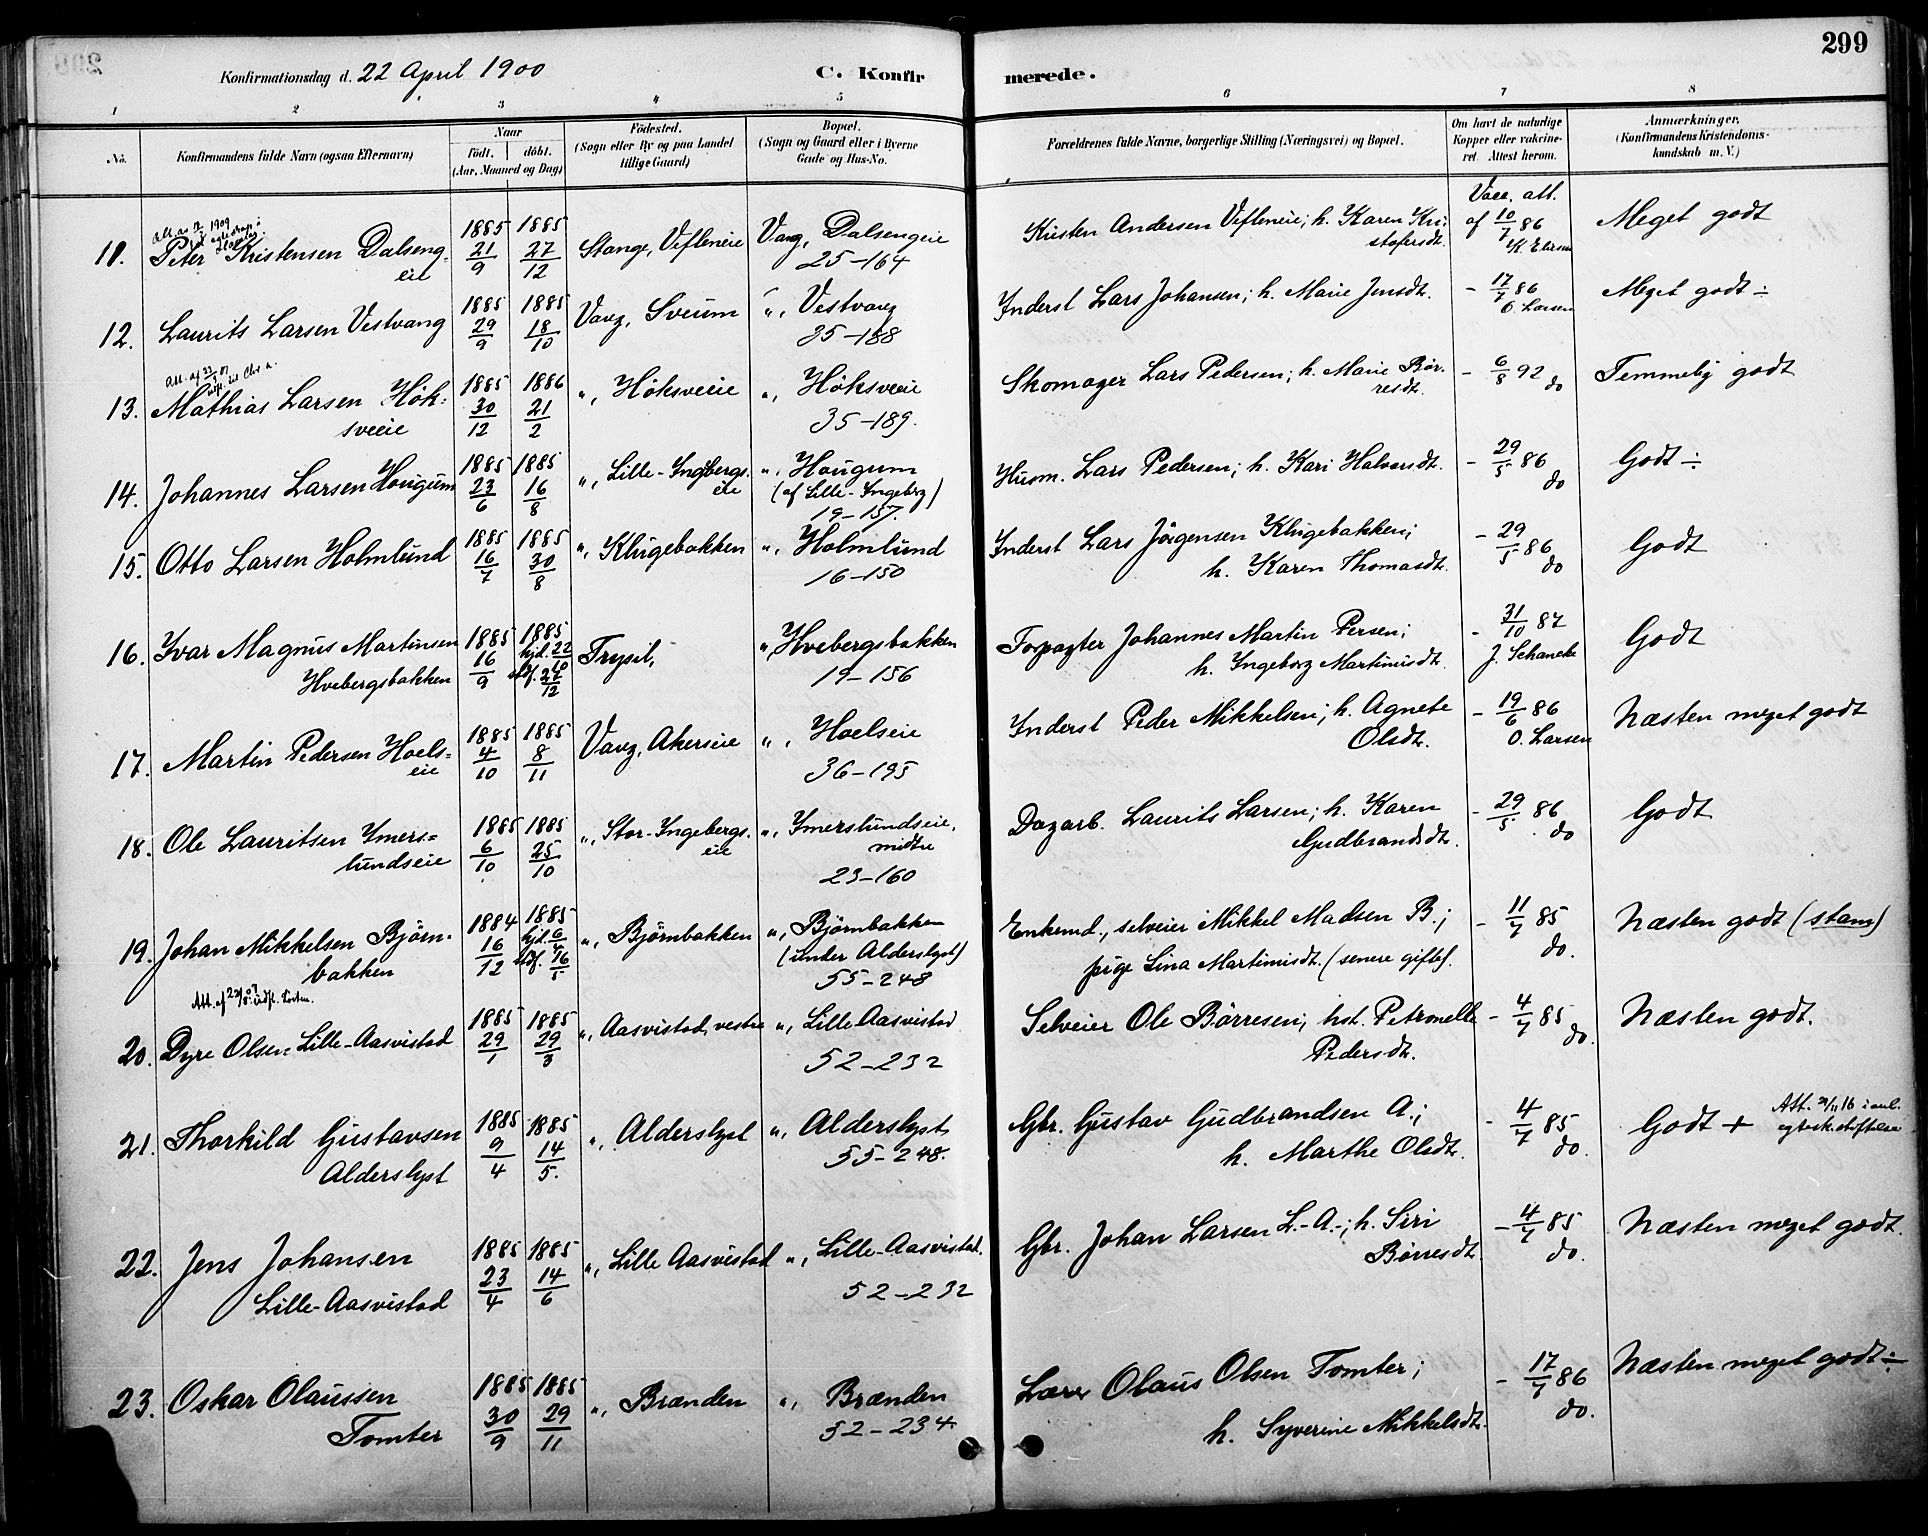 299
Konfirmationsdag d. 22 April 1900
C. Konfirmerede.
1 2 3 4 5 6 7 8
No. Konfirmandens fulde Navn (ogsaa Efternavn) Naar Födt. döbt. (Aar, Maaned og Dag) Födested. (Sogn eller By og paa Landet tillige Gaard) Bopæl. (Sogn og Gaard eller i Byerne Gade og Hus-No. Forældrenes fulde Navne, borgerlige Stilling (Næringsvei) og Bopæl. Om havt de naturlige Kopper eller vakcineret. Attest herom. Anmærkninger. (Konfirmandens Kristendomskundskab m. V.)
11. Peter Kristensen Dalsengeie 1885 21/9 1885 27/12 Stange, Vefleneie Vang, Dalsengeie 25-164 Kristen Andersen Vefleneie; h. Karen Kristofersdt. Vacc. att. af 10/7 86 Meget godt
12. Laurits Larsen Vestvang 1885 29/9 1885 18/10 Vang, Sveum ", Vestvang 35-188 Inderst Lars Johansen; h. Marie Jensdt. - 17/7 86 O. Larsen Meget godt ÷
13. Mathias Larsen Höksveie 1885 30/12 1886 21/2 ", Höksveie ", Höksveie 35-189. Skomager Lars Pedersen; h. Marie Börresdt. - 6/8 92 do Temmelig godt
14. Johannes Larsen Hougum 1885 23/6 1885 16/8 ", Lille-Ingebergseie ", Hougum (af Lille-Ingeberg) 19-157. Husm. Lars Pedersen; h. Kari Halvorsdt. - 29/5 86 do Godt ÷
15. Otto Larsen Holmlund 1885 16/7 1885 30/8 ", Klugebakken ", Holmlund 16-150 Inderst Lars Jörgensen Klugebakken; h. Karen Thomasdt. - 29/5 86 do Godt
16. Ivar Magnus Martinsen Hvebergsbakken 1885 16/9 1885 hjd. 22/10 stdf. 27/12 Trysil, ", Hvebergsbakken 19-156 Forpagter Johannes Martin Persen; h. Ingeborg Martinusdt. - 31/10 87 J. Schancke Godt
17. Martin Pedersen Hoelseie 1885 4/10 1885 8/11 Vang, Akerseie ", Hoelseie 36-195 Inderst Peder Mikkelsen; h. Agnete Olsdt. - 19/6 86 O. Larsen Næsten meget godt
18. Ole Lauritsen Ymerslundseie 1885 6/10 1885 25/10 ", Stor-Ingebergseie ", Ymerslundseie, midtre 23-160 Dagarb. Laurits Larsen; h. Karen Gudbrandsdt. - 29/5 86 do Godt
19. Johan Mikkelsen Björnbakken 1884 16/12 1885 ", Björnbakken ", Björnbakken (under Alderslyst) 55-248 Enkemd., selveier Mikkel Madsen B.; pige Lina Martinusdt. (senere gifte). - 11/7 85 do. Næsten godt (stam)
20. Dyre Olsen Lille-Aasvistad 1885 29/1 1885 29/3 ", Aasvistad, vestre ", Lille Aasvistad 52-232 Selveier Ole Börresen; hst. Petronelle Pedersdt. - 4/7 85 do. Næsten godt.
21. Thorkild Gustavsen Alderslyst 1885 9/4 1885 14/5. ", Alderslyst ", Alderslyst 55-248. Gbr. Gustav Gudbrandsen A.; h. Marthe Olsdt. - 4/7 85 do. Godt +
22. Jens Johansen Lille-Aasvistad 1885 23/4 1885 14/6 ", Lille Aasvistad ", Lille-Aasvistad. 52-232 Gbr. Johan Larsen L.-A.-; h. Siri Börresdt. - 4/7 85 do. Næsten meget godt.
23. Oskar Olaussen Tomter 1885 30/9 1885 29/11 ", Brænden ", Brænden 52-234 Lærer Olaus Olsen Tomter; h. Syverine Mikkelsdt. - 17/7 86 do. Næsten meget godt ÷